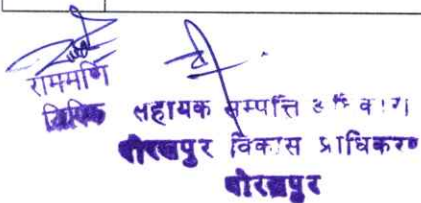 राममणि
लिपिक
सहायक सम्पत्ति अधिकारी
गोरखपुर विकास प्राधिकरण
गोरखपुर